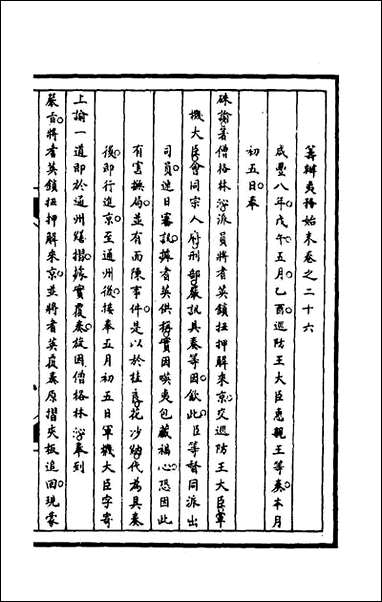 籌辦夷務始末卷之二十六
咸豐八年戊午五月乙酉巡防王大臣惠親王等奏本月
初五日奉
硃諭著僧格林沁派員將耆英鎖扭押解來京交巡防王大臣軍
機大臣會同宗人府刑部嚴訊具奏等因欽此臣等督同派出
司員連日審訊據耆英供稱實因㗸夷包藏禍心恐因此
有害撫局並有面陳事件是以於桂良花沙納代為具奏
後即行進京至通州後接奉五月初五日軍機大臣字寄
上諭一道即於通州繕摺據實覆奏旋因僧格林沁奉到
嚴旨將耆英鎖扭押解來京並將耆英覆奏原摺夾板追回現蒙